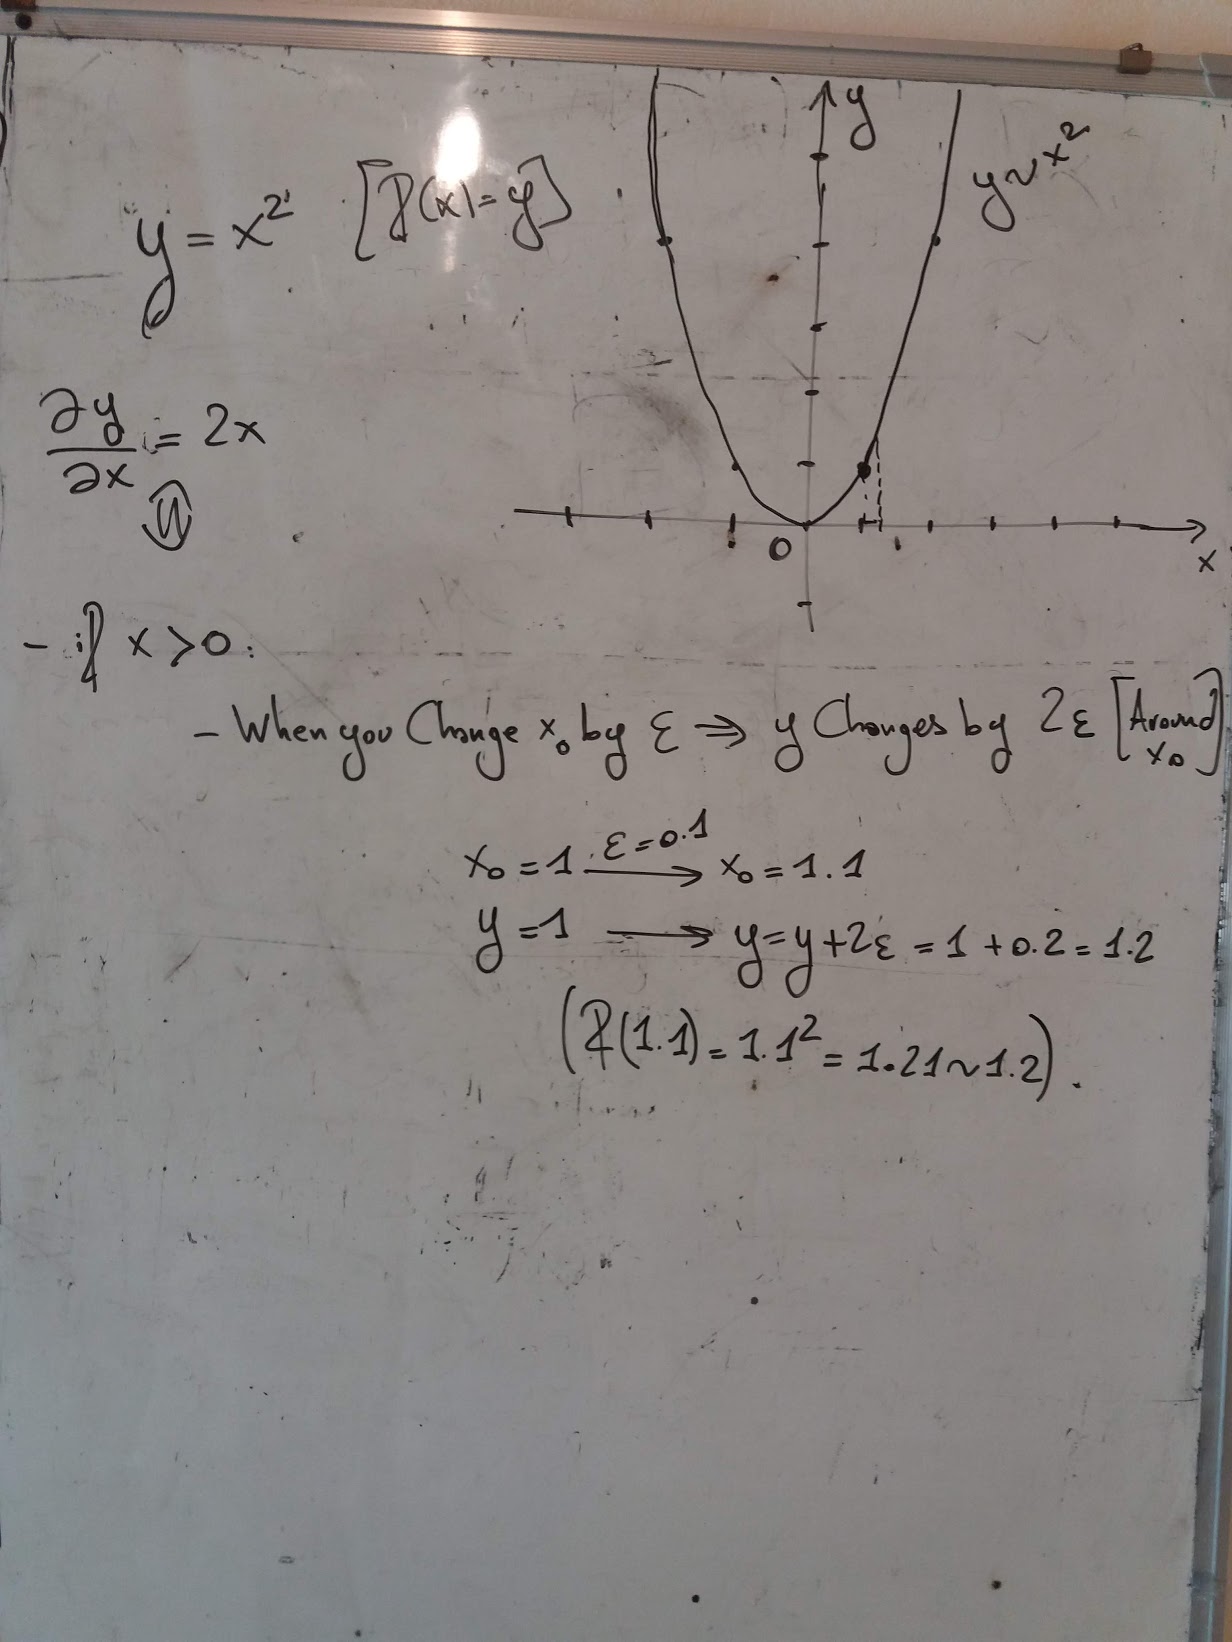 y = x² [f(x) = y]
y
y ~ x²
∂y/∂x = 2x
0
x
- if x > 0:
- When you Change x₀ by ε ⇒ y Changes by 2ε [Around x₀]
x₀ = 1 —ε = 0.1→ x₀ = 1.1
y = 1 → y = y + 2ε = 1 + 0.2 = 1.2
(f(1.1) = 1.1² = 1.21 ~ 1.2).